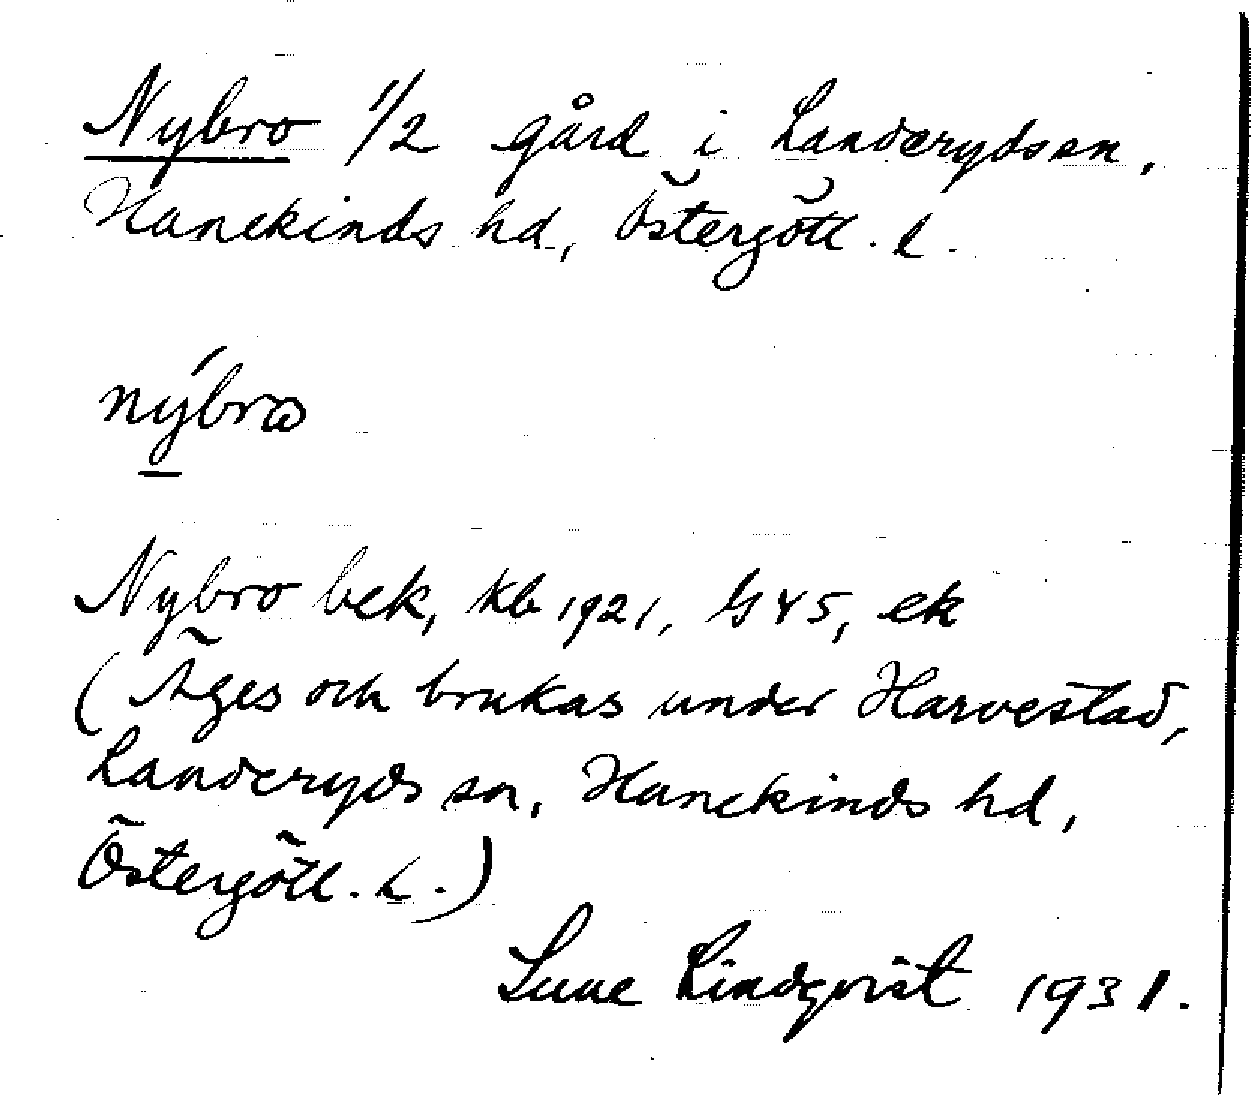 Nybro 1/2 gård i Landerydssn,
Hanekinds hd, Östergötl. l.
nýbro
Nybro bek, kb 1921, G45, ek
(Äges och brukas under Harvestad,
Landeryds sn, Hanekinds hd,
Östergötl. l.)
Sune Lindqvist 1931.